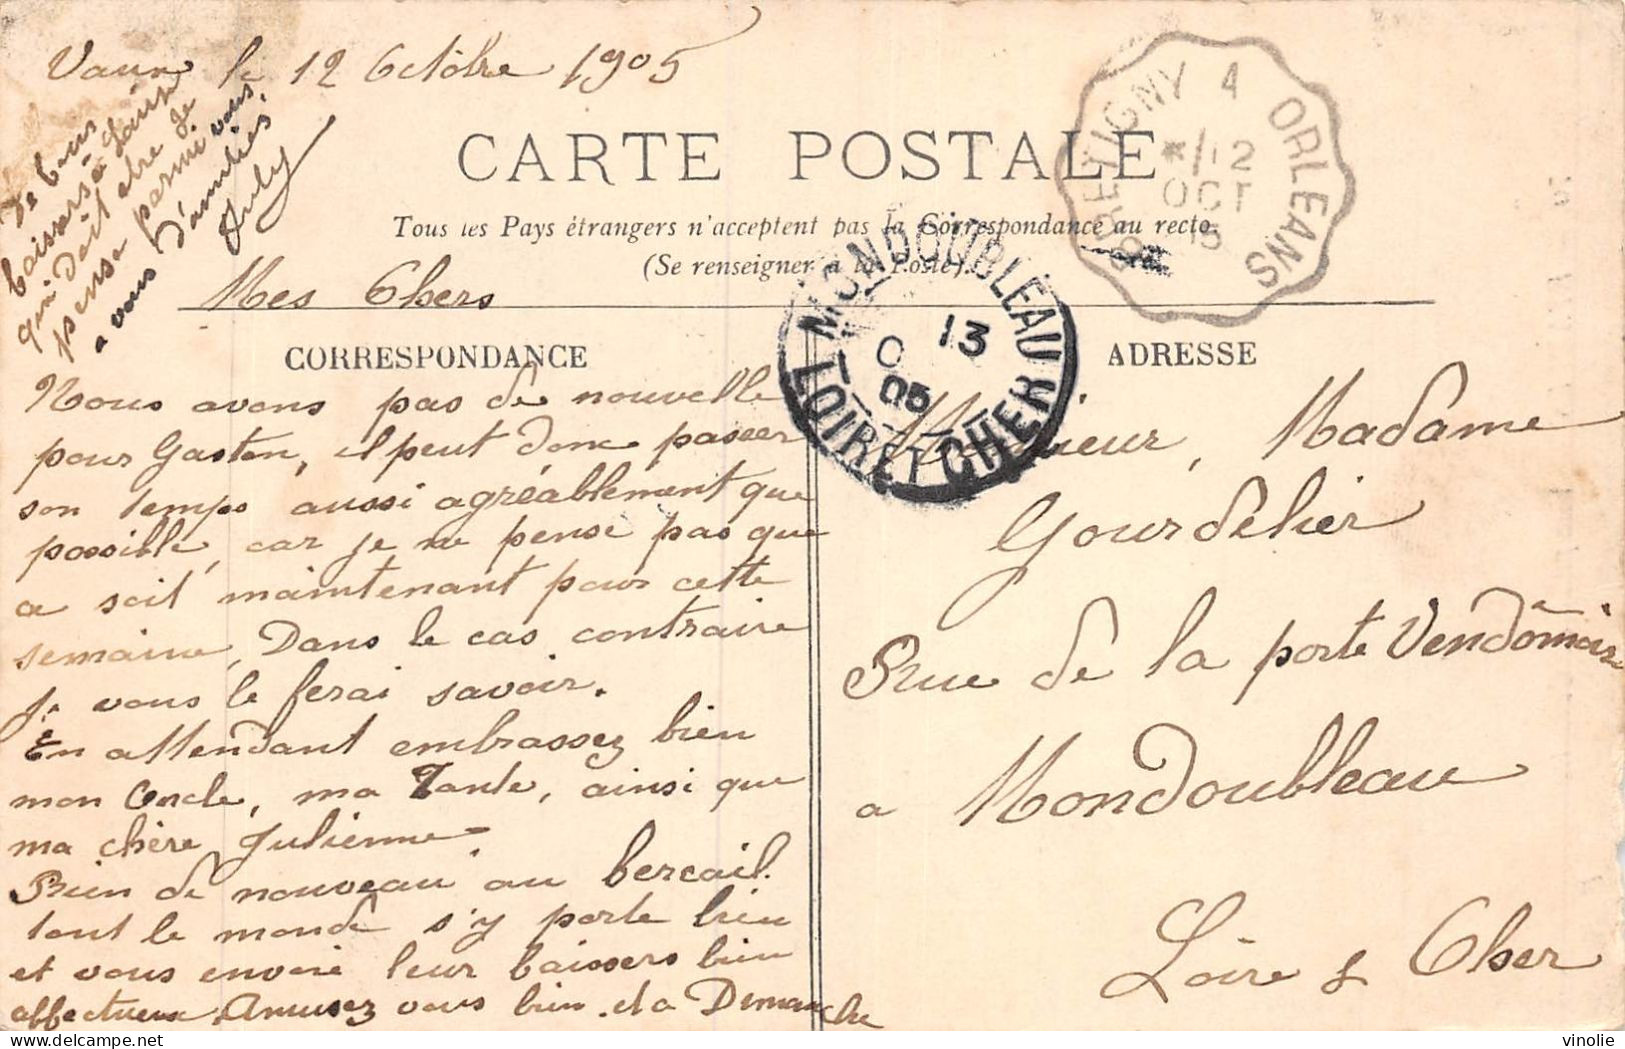 le 12 Octôbre 1905
CARTE POSTALE
Tous les Pays étrangers n'acceptent pas la Correspondance au recto.
(Se renseigner à la Poste).
BRETIGNY A ORLEANS
*/12
OCT
MONDOUBLEAU
13
O
05
LOIR ET CHER
De bons
baisers à
qui doit etre je
pense parmi vous,
a vous d'amitiés
Mes Chers
CORRESPONDANCE
Nous avons pas de nouvelle
pour Gaston, il peut donc passer
son temps aussi agréablement que
possible, car je ne pense pas que
ce soit maintenant pour cette
semaine. Dans le cas contraire
je vous le ferai savoir.
En attendant embrassez bien
mon Oncle, ma Tante, ainsi que
ma chère Julienne.
Rien de nouveau au bercail.
tout le monde s'y porte bien
et vous envoie leur baissers bien
affectueux. Amusez vous bien. et a Dimanche
ADRESSE
Monsieur, Madame
Gourdelier
Rue de la porte Vendômoise
a Mondoubleau
Loire & Cher
vinolie